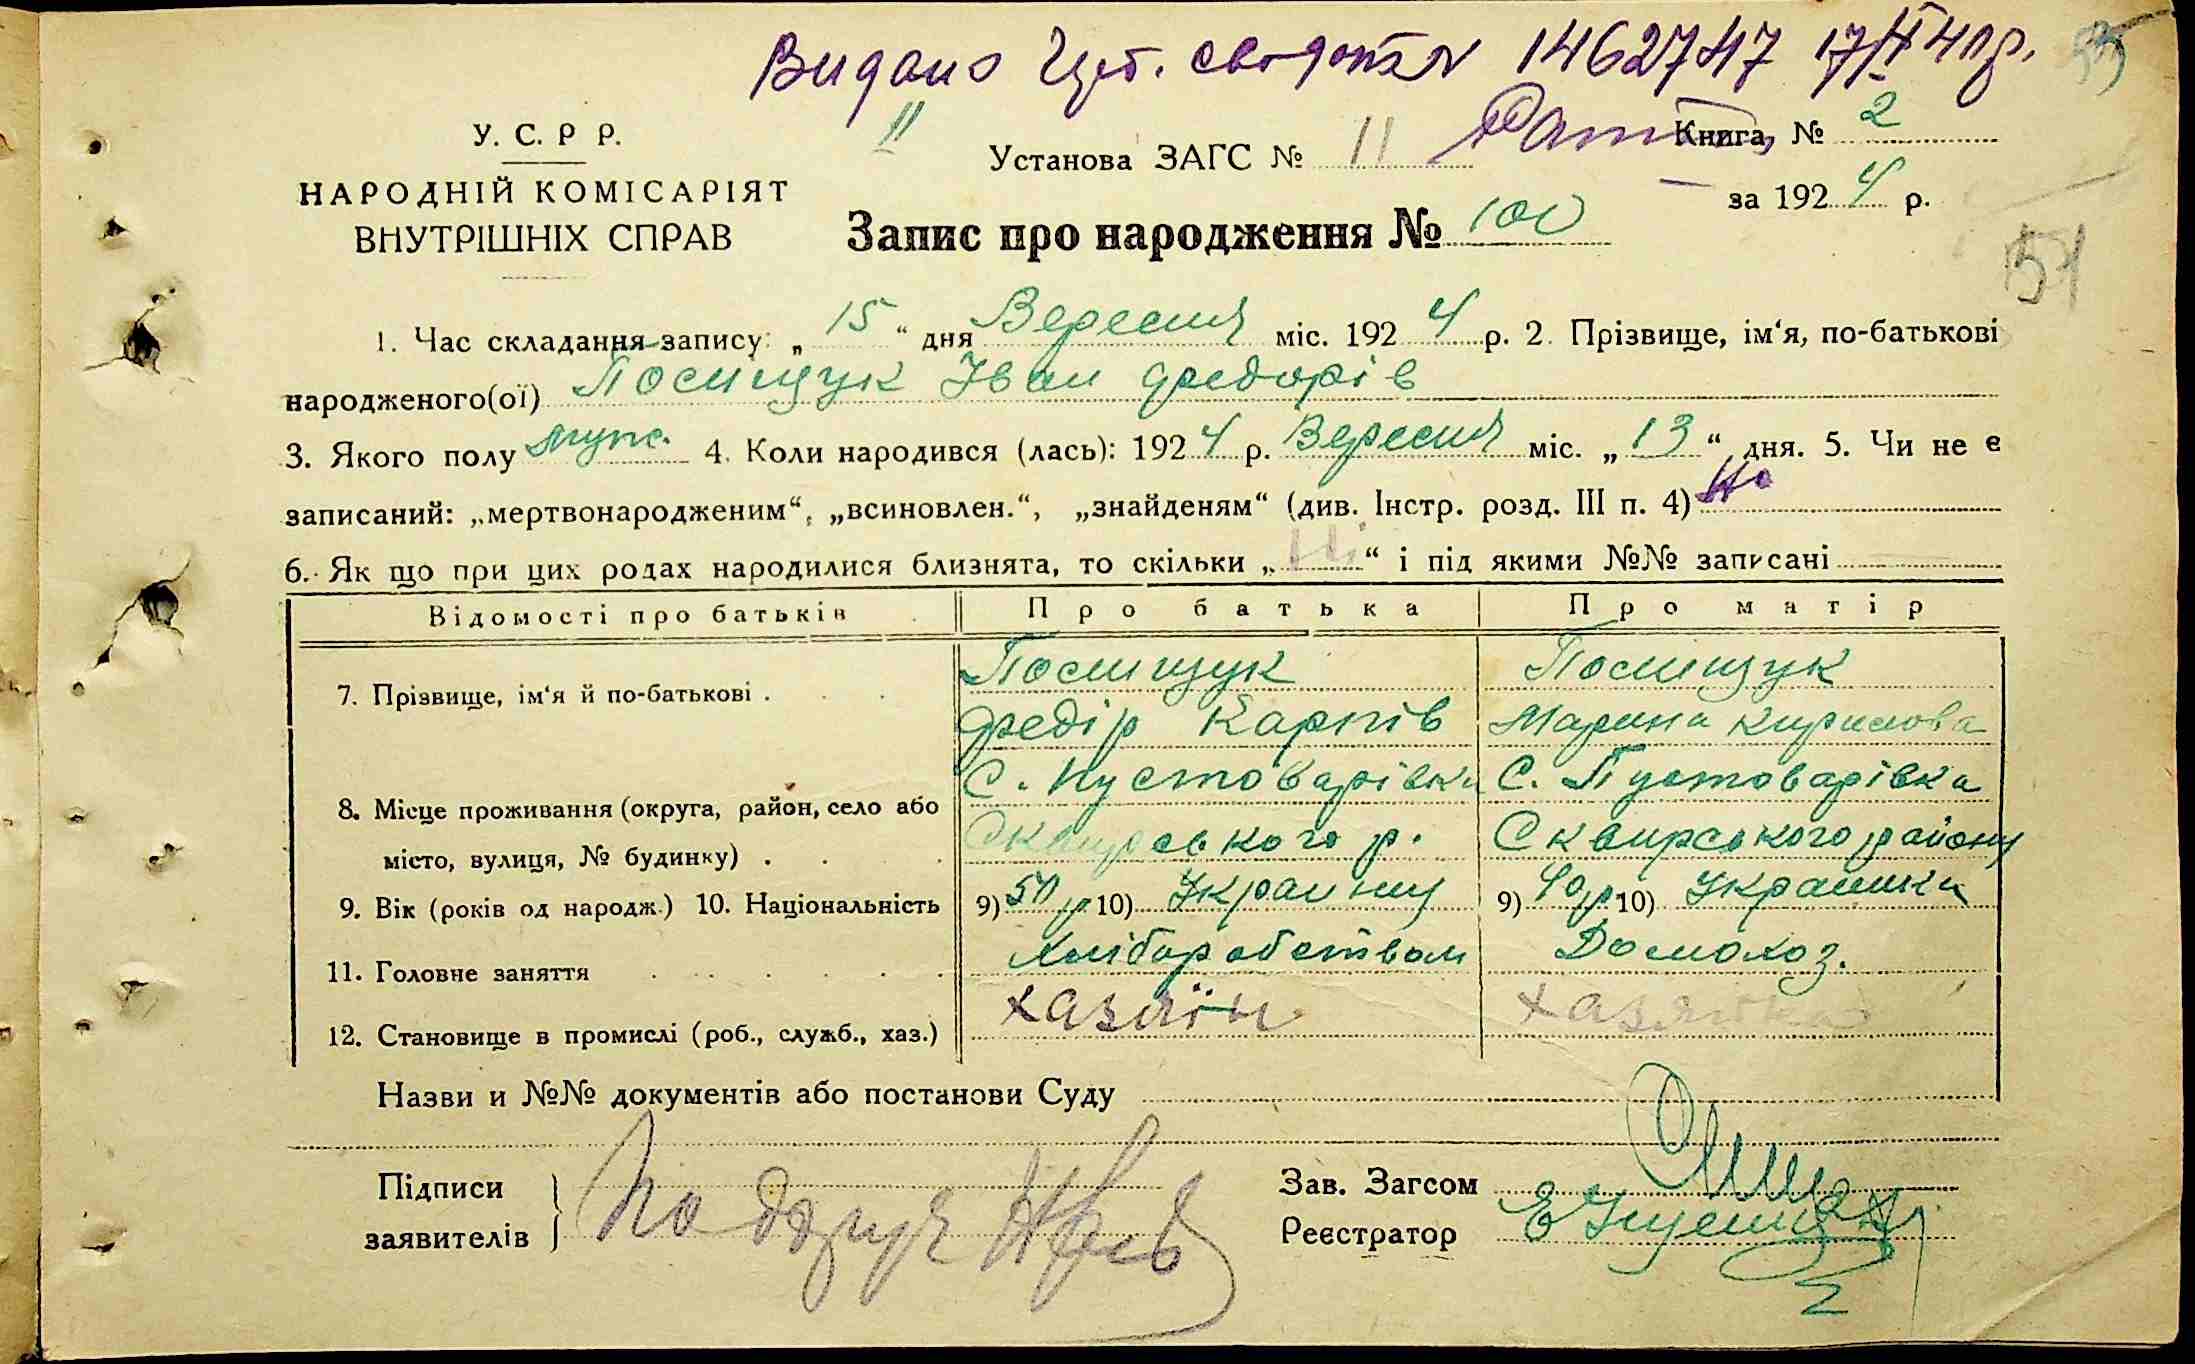 Видано 1462747 17/II 41р.
У. С. Р Р.
НАРОДНІЙ КОМІСАРІЯТ
ВНУТРІШНІХ СПРАВ
11
Установа ЗАГС № 11
Книга № 2
за 1924 р.
Запис про народження № 100
51
1. Час складання запису: „15“ дня Вересня міс. 1924 р. 2. Прізвище, ім‘я, по-батькові
народженого(ої) Поліщук Іван Федорів
3. Якого полу муж. 4. Коли народився (лась): 1924 р. Вересня міс. „13“ дня. 5. Чи не є
записаний: „мертвонародженим“, „всиновлен.“, „знайденям“ (див. Інстр. розд. III п. 4)
6. Як що при цих родах народилися близнята, то скільки „Ні“ і під якими №№ записані
Відомості про батьків Про батька Про матір
7. Прізвище, ім‘я й по-батькові . Поліщук Поліщук
Федір Карпів Марина Кирилова
С. Пустоварівка С. Пустоварівка
8. Місце проживання (округа, район, село або
місто, вулиця, № будинку) . Сквирського р. Сквирського району
9. Вік (років од народж.) 10. Національність 9) 50 р 10) Украинец 9) 40 р 10) Украинка
11. Головне заняття Хліборобством Домохоз.
12. Становище в промислі (роб., служб., хаз.) хазяїн хазяйка
Назви и №№ документів або постанови Суду
Підписи
заявителів
Зав. Загсом
Реєстратор